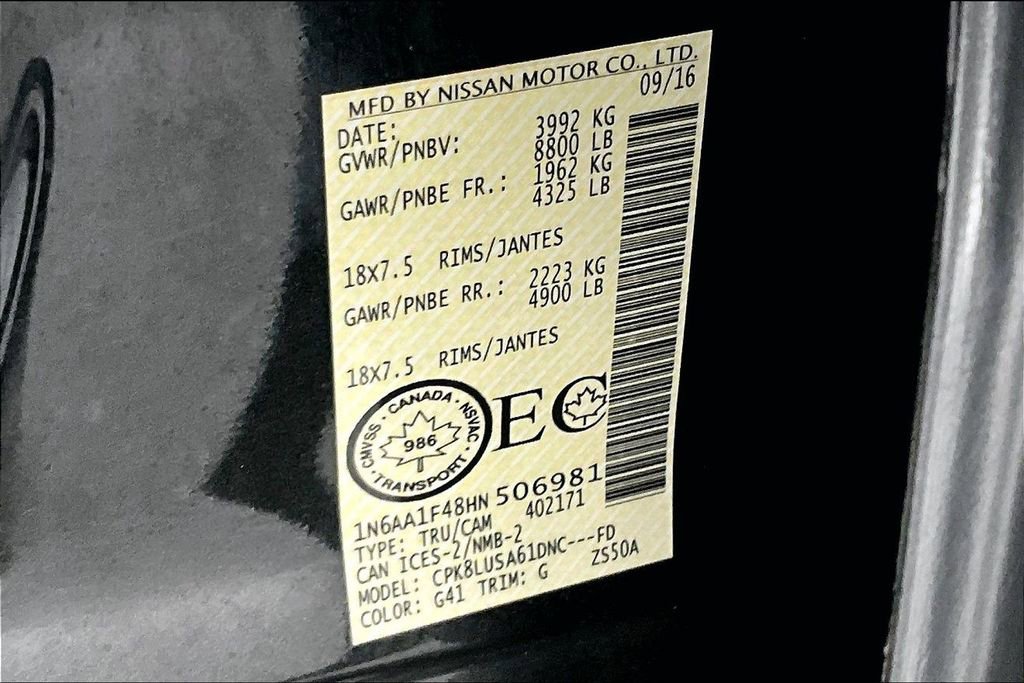 MFD BY NISSAN MOTOR CO., LTD.
DATE: 09/16
GVWR/PNBV: 3992 KG
8800 LB
GAWR/PNBE FR.: 1962 KG
4325 LB
18x7.5 RIMS/JANTES
GAWR/PNBE RR.: 2223 KG
4900 LB
18x7.5 RIMS/JANTES
CANADA · NSVAC · TRANSPORT · CMVSS ·
986
EC
1N6AA1F48HN 506981
TYPE: TRU/CAM 402171
CAN ICES-2/NMB-2
MODEL: CPK8LUSA61DNC---FD
COLOR: G41 TRIM: G ZS50A